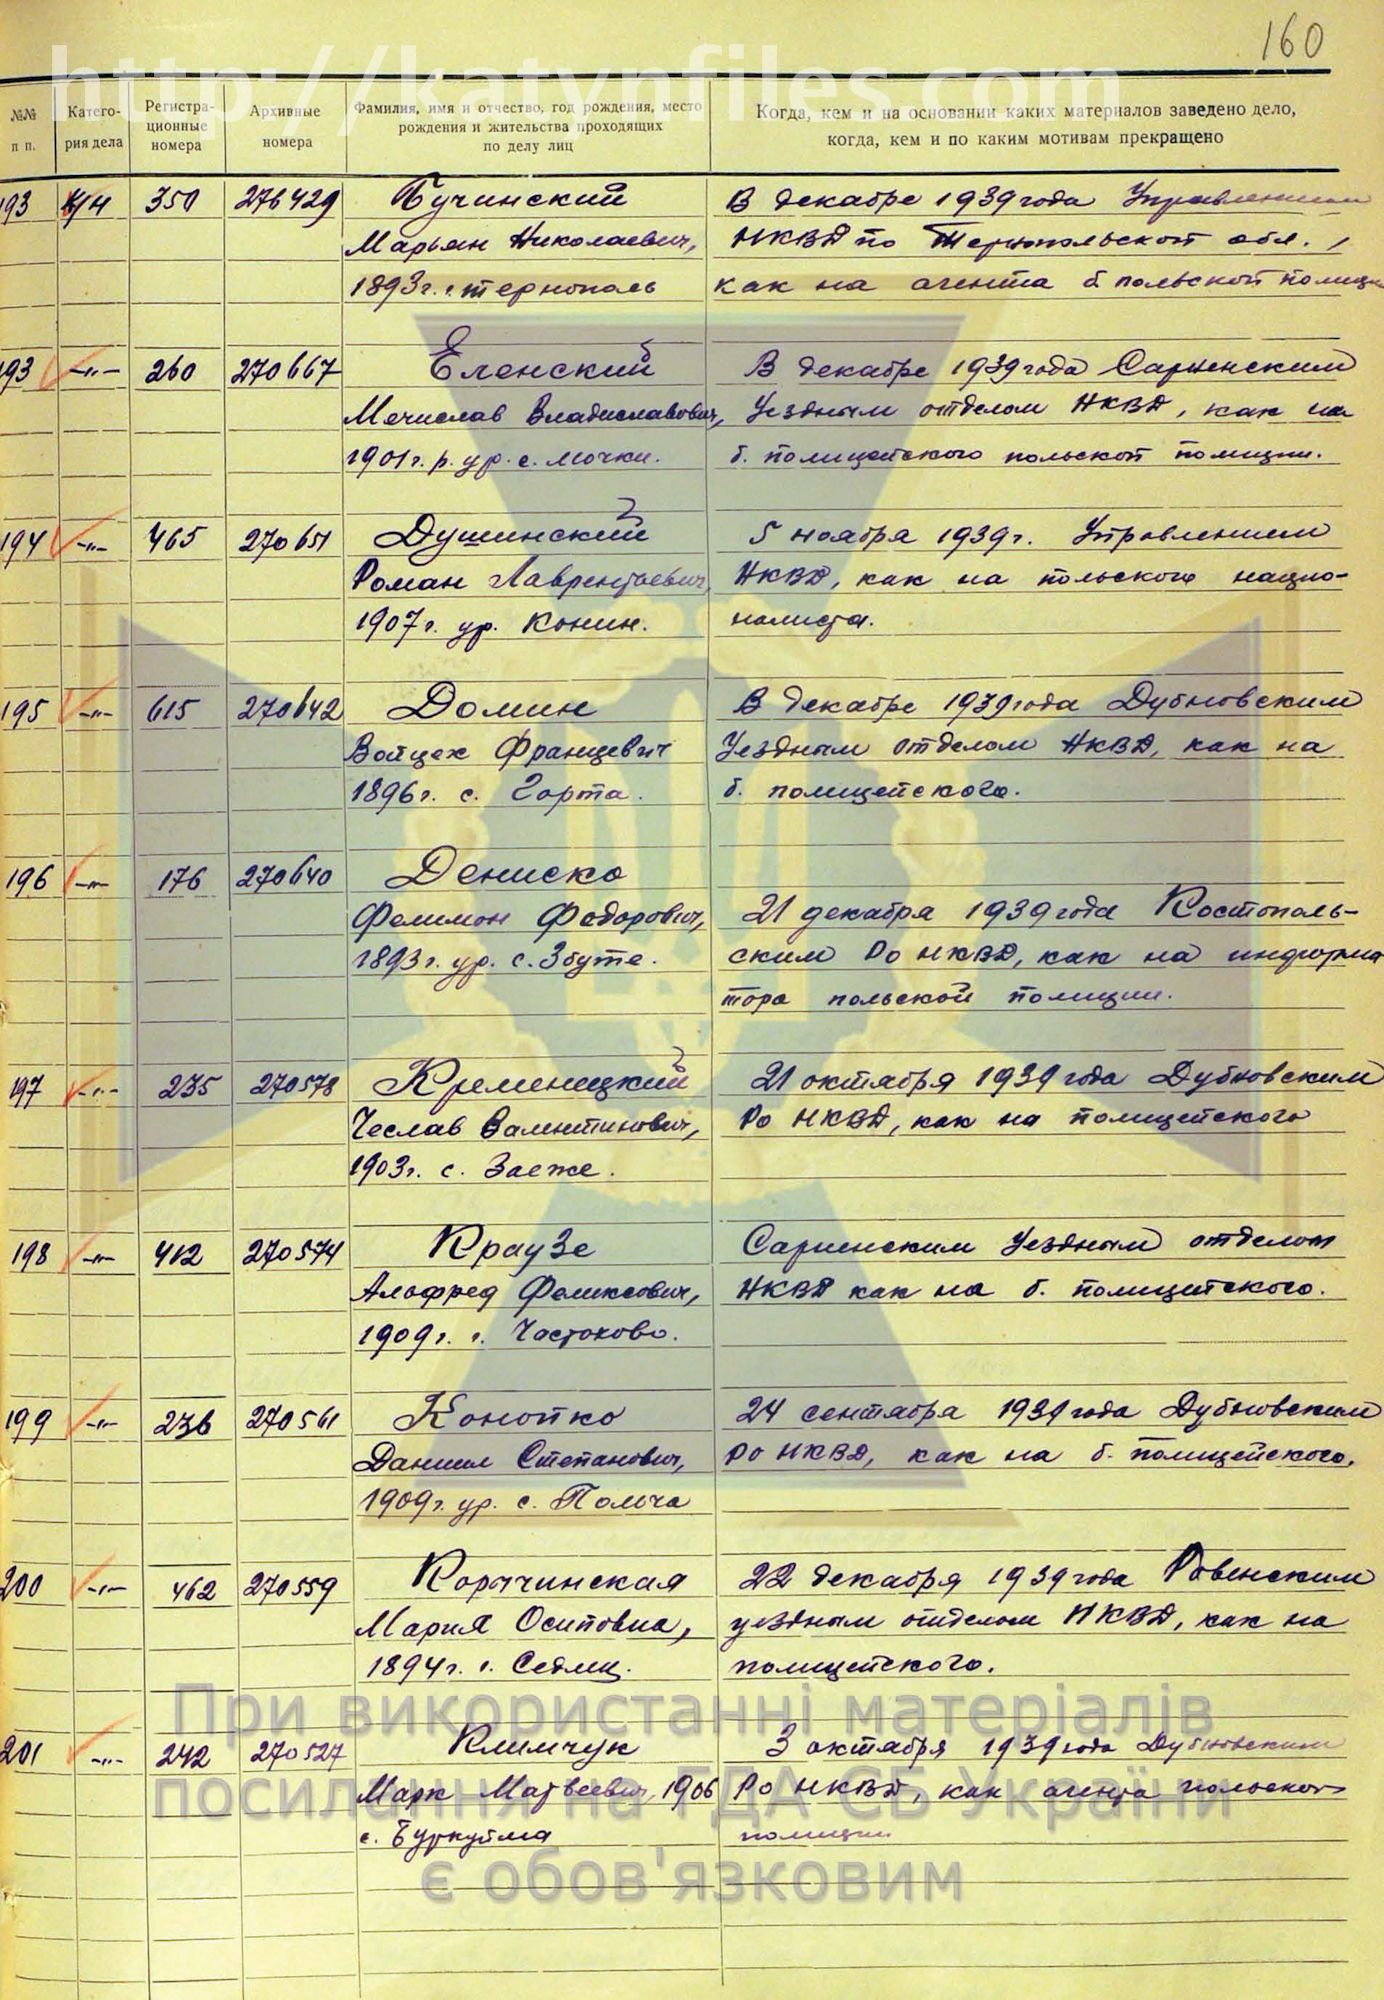 160
http://katynfiles.com
№№ п п.
Катего-рия дела
Регистра-ционные номера
Архивные номера
Фамилия, имя и отчество, год рождения, место рождения и жительства проходящих по делу лиц
Когда, кем и на основании каких материалов заведено дело, когда, кем и по каким мотивам прекращено
193 350 276429 Бучинский В декабре 1939 года Управлением
Марьян Николаевич, НКВД по Тернопольской обл.,
1893г. г. тернополь как на агента б польской полиции
193 —"— 260 270667 Еленский В декабре 1939 года Сарненским
Мечислав Владиславович, Уездным отделом НКВД, как на
1901г. р. ур. с. Мочки. б. полицейского польской полиции.
194 —"— 465 270651 Душинский 5 ноября 1939г. Управлением
Роман Лаврентьевич, НКВД, как на польского нацио-
1907г. ур. Конин. налиста.
195 —"— 615 270642 Домин В декабре 1939 года Дубновским
Войцех Францевич Уездным отделом НКВД, как на
1896г. с. Горта. б. полицейского.
196 —"— 176 270640 Дениско
Филимон Федорович, 21 декабря 1939 года Костополь-
1893г. ур. с. Збуте. ским Ро НКВД, как на информа
тора польской полиции.
197 —"— 235 270578 Кременецкий 21 октября 1939 года Дубновским
Чеслав Валентинович, Ро НКВД, как на полицейского
1903г. с. Заеже.
198 —"— 412 270574 Краузе Сарненским Уездным отделом
Альфред Феликсович, НКВД как на б. полицейского.
1909г. г. Частоково.
199 —"— 236 270561 Конопко 24 сентября 1939 года Дубновским
Даниил Степанович, Ро НКВД, как на б. полицейского.
1909г. ур. с. Польча
200 —"— 462 270559 Корычинская 22 декабря 1939 года Ровенским
Мария Осиповна, уездным отделом НКВД, как на
1894г. г. Седлец. полицейского.
При використанні матеріалів
201 —"— 242 270527 Климчук 3 октября 1939 года Дубновским
Марк Матвеевич, 1906 Ро НКВД, как агента польской
посилання на ГДА СБ України
с. полиции
є обов'язковим